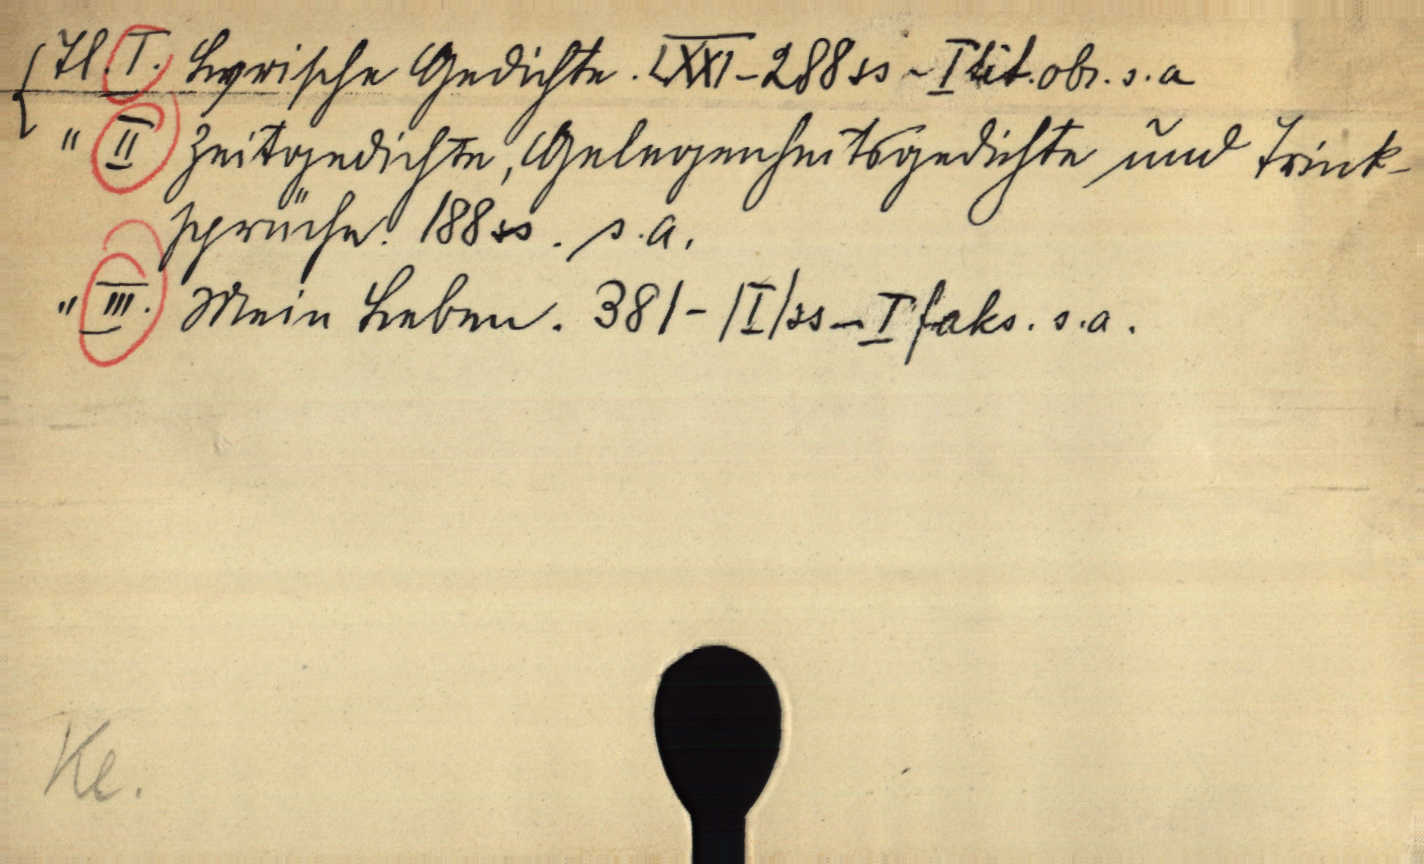 Tl. I. Lyrische Gedichte. LXXI-288ss - I tit. obr. s. a
" II Zeitgedichte, Gelegenheitsgedichte und Trink-
sprüche. 188ss. s. a.
" III. Mein Leben. 381-|I|ss - I faks. s. a.
Ke.